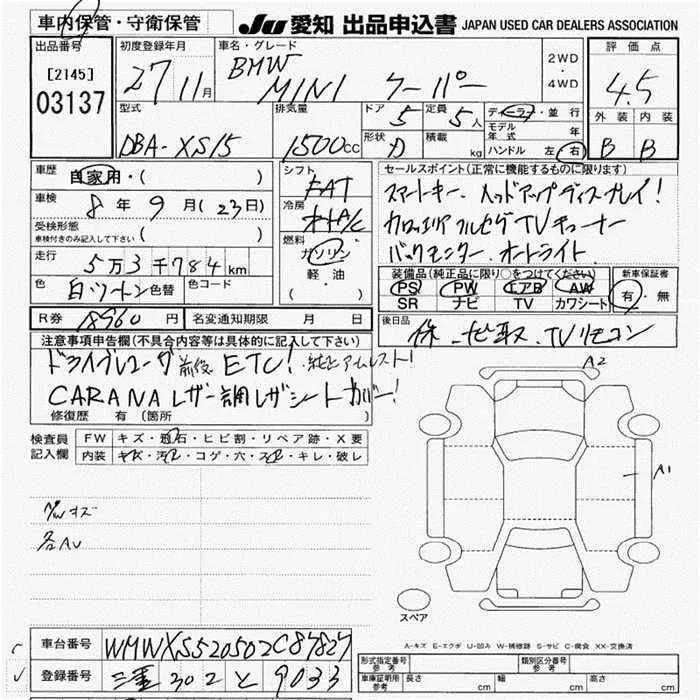 車内保管・守衛保管 JU 愛知 出品申込書 JAPAN USED CAR DEALERS ASSOCIATION
出品番号 初度登録年月 車名・グレード 評価点
[2145] 27 11月 BMW MINI クーパー 2WD ・ 4WD 4.5
03137
型式 排気量 ドア 5 定員 5人 ディーラー・並行 外装 内装
DBA-XS15 1500cc 形状 D 積載 kg モデル年式 年 B B
ハンドル 左 右
車歴 自家用・( ) シフト FAT セールスポイント(正常に機能するものに限ります)
車検 8年 9月(23日) 冷房 オートA/C スマートキー、ヘッドアップディスプレイ!
受検形態 車検付きのみ記入して下さい ( ) 燃料 ガソリン フルセグTVチューナー
走行 5万3千784km 軽油 バックモニター、オートライト
( ) 装備品(純正品に限り○をつけてください) 新車保証書
色 白ツートン 色替 色コード PS PW エアB AW 有・無
SR ナビ TV カワシート
R券 18960円 名変通知期限 月 日 後日品 TVリモコン
注意事項申告欄(不具合内容等は具体的に記入して下さい)
ドライブレコーダ前後 ETC! 純正アームレスト!
CARANAレザー調レザシートカバー!
修復歴 有(箇所 )
検査員記入欄 FW キズ・飛石・ヒビ割・リペア跡・X要
内装 キズ・汚レ・コゲ・穴・スレ・キレ・破レ
A2
A1
キズ
各AU
スペア
A-キズ E-エクボ U-凹み W-補修跡 S-サビ C-腐食 XX-交換済
車台番号 WMWXS520502C87827 形式指定番号 参考 類別区分番号 参考
登録番号 三重 302 と 9033 車庫証明用 参考 長さ cm 幅 cm 高さ cm